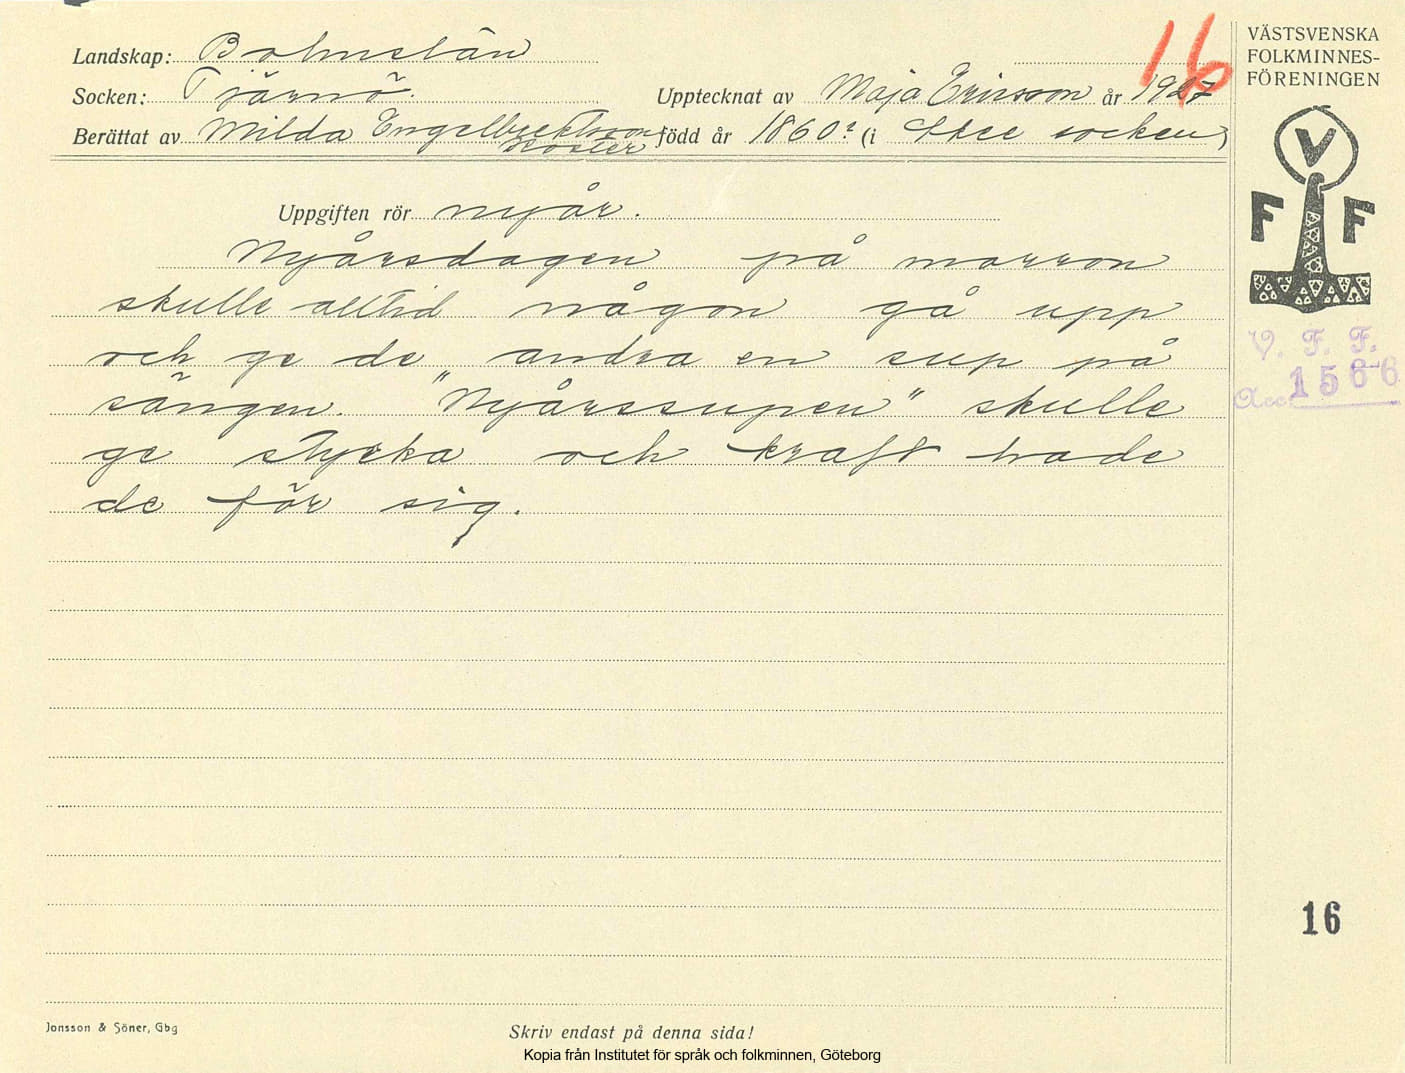 16
VÄSTSVENSKA
FOLKMINNES-
FÖRENINGEN
Landskap: Bohuslän
Socken: Tjärnö. Upptecknat av Maja Ericsson år 1927
Berättat av Milda Engelbrektsson född år 1860? (i Skee socken)
Koster
V
F F
Uppgiften rör nyår.
Nyårsdagen på morron
skulle alltid någon gå upp
och ge de andra en sup på
sängen. "Nyårssupen" skulle
ge stycka och kraft hade
de för sig.
V. F. F.
Acc. 1566
16
Jonsson & Söner, Gbg
Skriv endast på denna sida!
Kopia från Institutet för språk och folkminnen, Göteborg